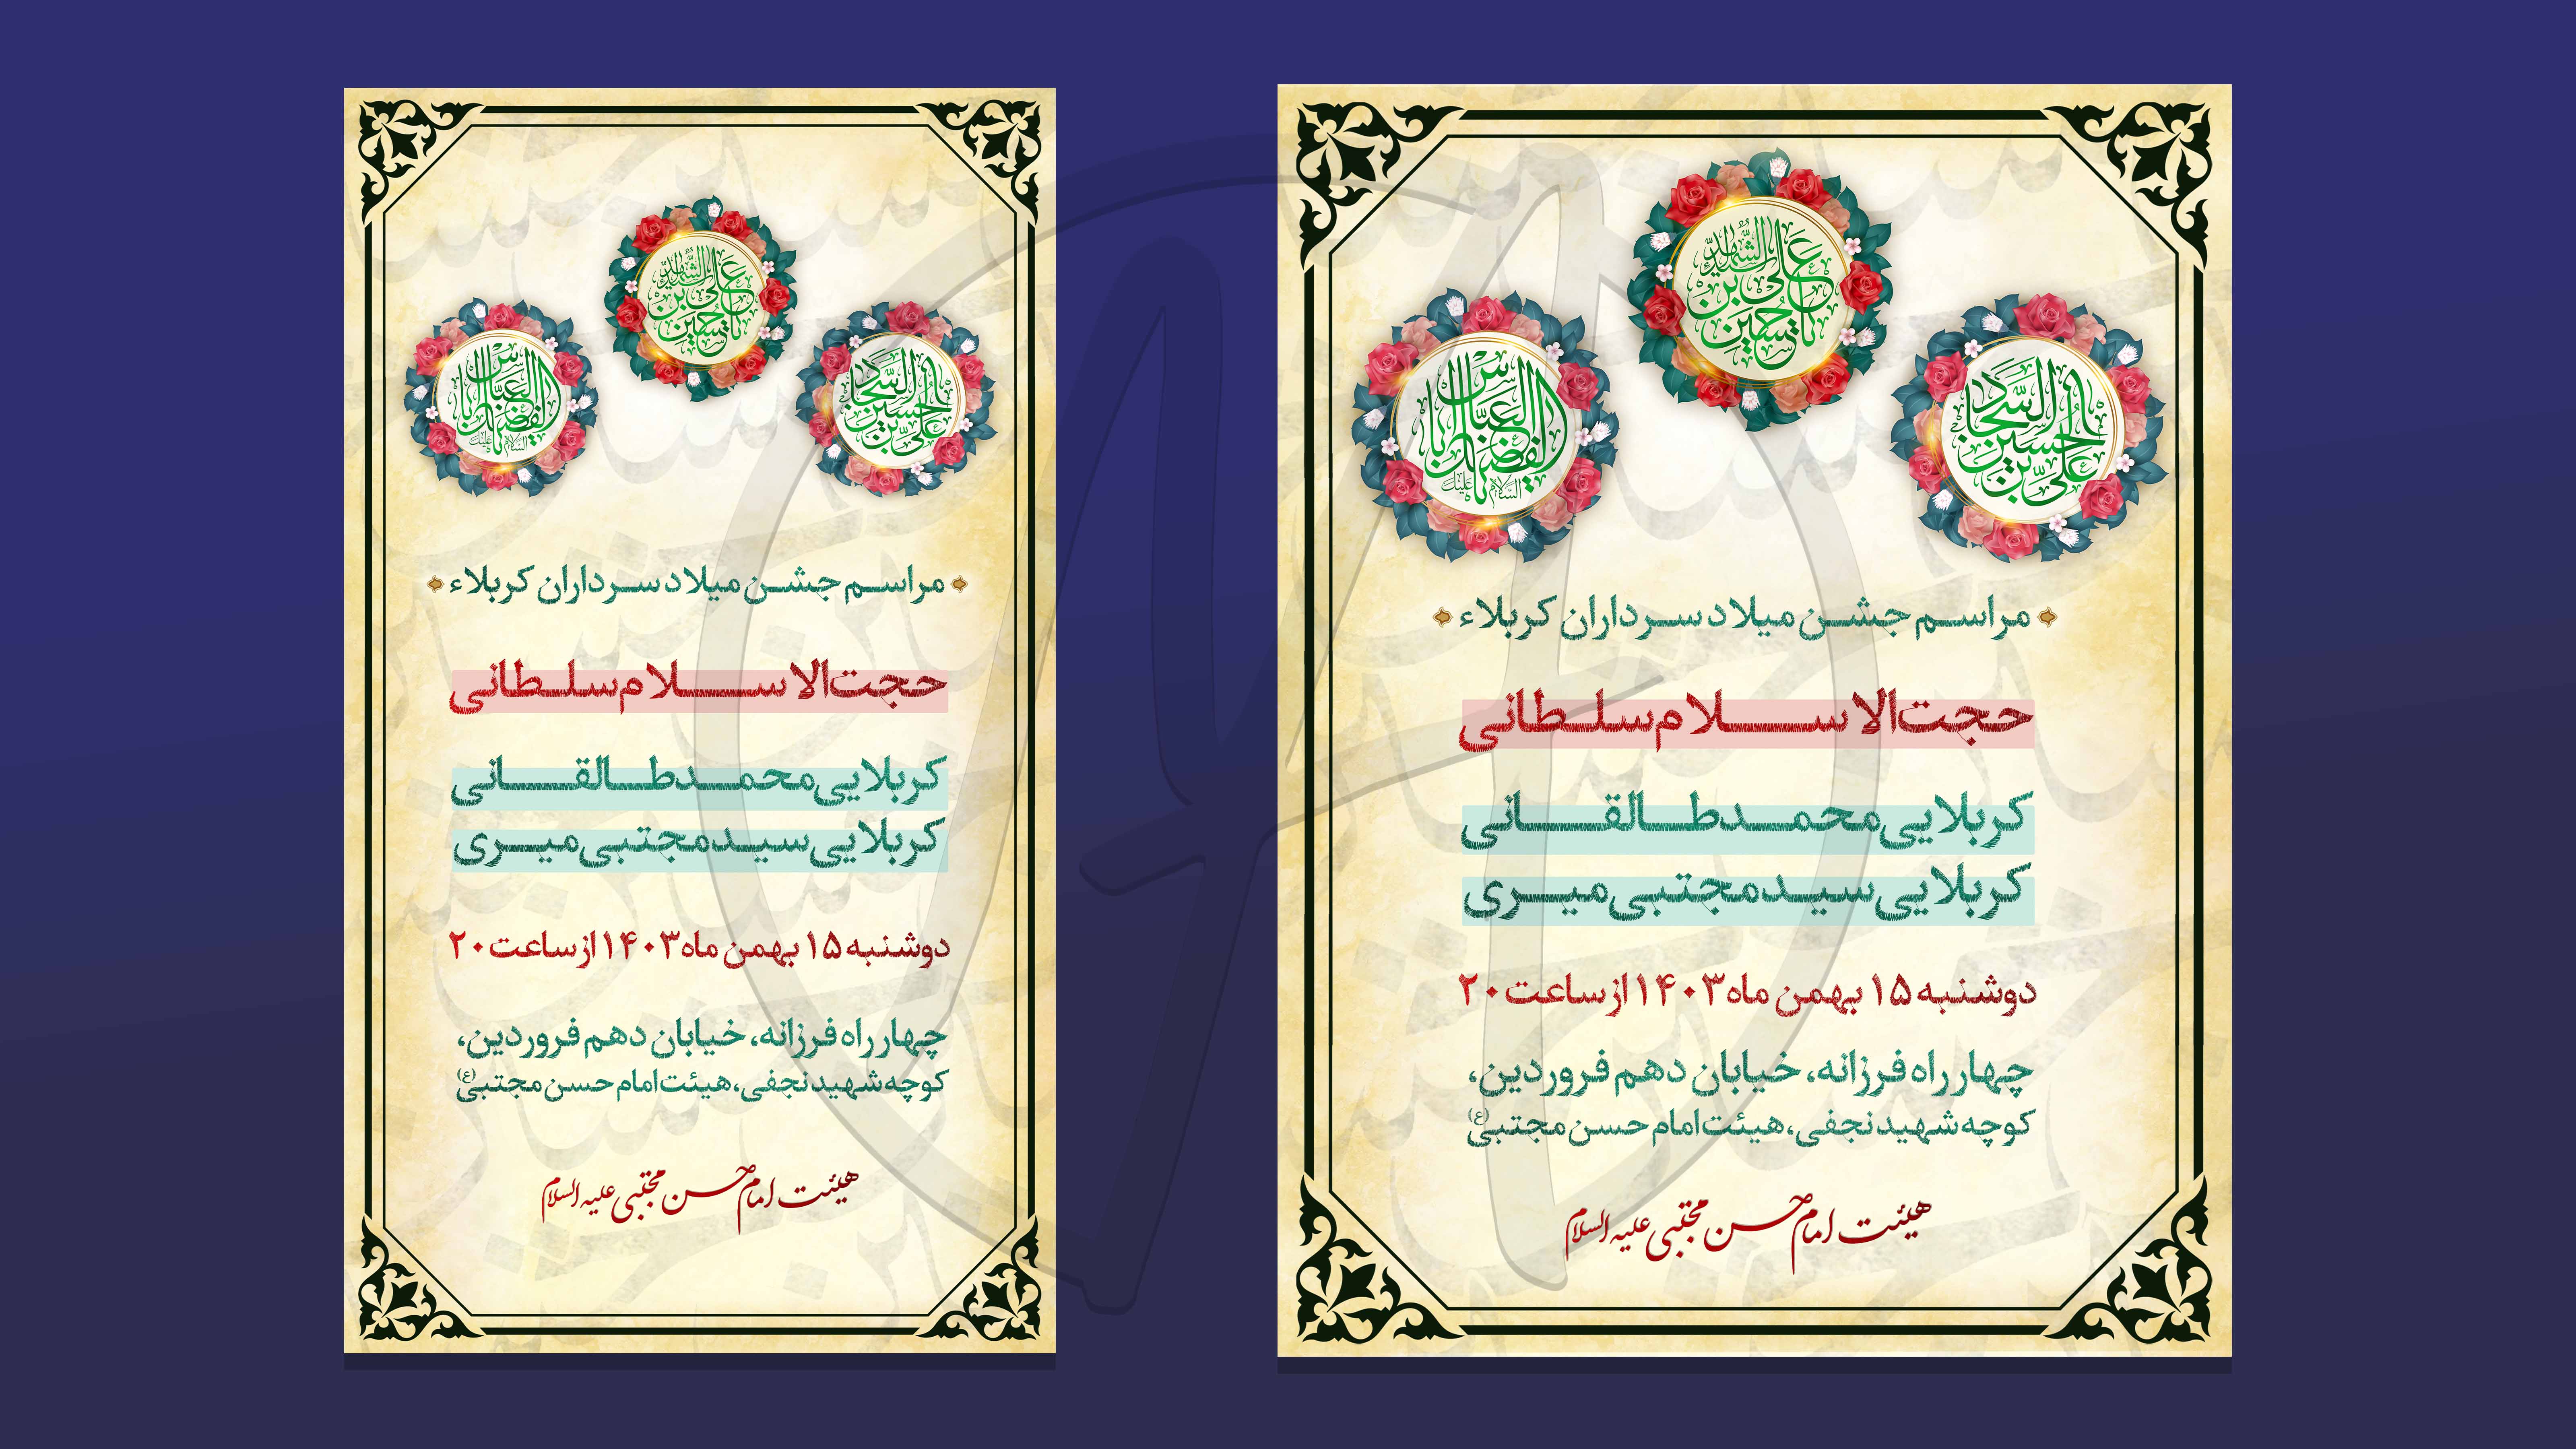 یا حسین بن علی الشهید
یا اباالفضل العباس
السلام علیک
علی بن الحسین السجاد
مراسم جشن میلاد سرداران کربلاء
حجت‌الاسلام سلطانی
کربلایی محمد طالقانی
کربلایی سید مجتبی میری
دوشنبه ۱۵ بهمن ماه ۱۴۰۳ از ساعت ۲۰
چهار راه فرزانه، خیابان دهم فروردین،
کوچه شهید نجفی، هیئت امام حسن مجتبی(ع)
هیئت امام حسن مجتبی علیه السلام
یا حسین بن علی الشهید
یا اباالفضل العباس
السلام علیک
علی بن الحسین السجاد
مراسم جشن میلاد سرداران کربلاء
حجت‌الاسلام سلطانی
کربلایی محمد طالقانی
کربلایی سید مجتبی میری
دوشنبه ۱۵ بهمن ماه ۱۴۰۳ از ساعت ۲۰
چهار راه فرزانه، خیابان دهم فروردین،
کوچه شهید نجفی، هیئت امام حسن مجتبی(ع)
هیئت امام حسن مجتبی علیه السلام